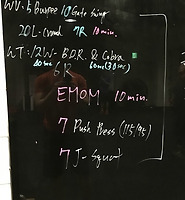 WU: 5 Burpee 10 Gate Swing
20 L-crunch 7R 10 min.
WT: /2W- B.O.R. & Cobra
40sec 60sec (30sec)
6R
EMOM 10 min.
7 Push Press (115/95)
7 J-Squat